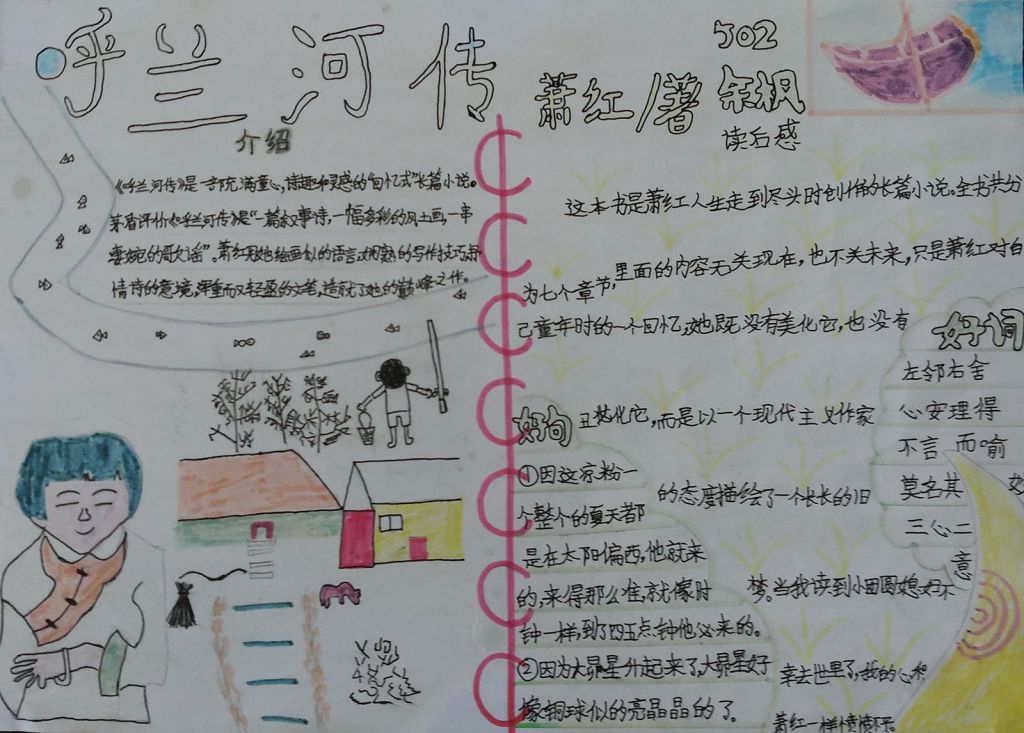 呼兰河传
502
萧红/著 余枫
介绍
《呼兰河传》是一部充满童心,诗趣和灵感的“回忆式”长篇小说。
茅盾评价《呼兰河传》是“一篇叙事诗,一幅多彩的风土画,一串
凄婉的歌谣”。萧红用她绘画似的语言,娴熟的写作技巧,抒
情诗的意境,浑重而又轻盈的文笔,造就了她的巅峰之作。
读后感
这本书是萧红人生走到尽头时创作的长篇小说。全书共分
为七个章节,里面的内容无关现在,也不关未来,只是萧红对自
己童年时的一个回忆,她既没有美化它,也没有
丑化它,而是以一个现代主义作家
的态度描绘了一个长长的旧
梦。当我读到小团圆媳妇不
幸去世里了,我的心和
萧红一样愤愤不平。
好句
①因这凉粉一
个整个的夏天都
是在太阳偏西,他就来
的,来得那么准,就像时
钟一样,到了四五点钟他必来的。
②因为大昴星升起来了,大昴星好
像铜球似的亮晶晶的了。
好词
左邻右舍
心安理得
不言而喻
莫名其妙
三心二意